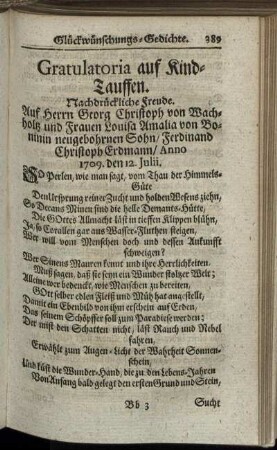 Glückwünschungs-Gedichte. 389
Gratulatoria auf Kind-
Tauffen.
Nachdrückliche Freude.
Auf Herrn Georg Christoph von Wach-
holtz und Frauen Louisa Amalia von Bo-
nninin neugebohrnen Sohn/ Ferdinand
Christoph Erdmann/ Anno
1709. den 12. Julii.
SO Perlen, wie man sagt, vom Thau der Himmels-
Güte
Den Ursprung reiner Zucht und holden Wesens ziehn,
So Decans Minen sind die helle Demants-Hütte,
Die GOttes Allmacht läst in tieffen Klippen blühn,
Ja, so Corallen gar aus Wasser-Fluthen steigen,
Wer will vom Menschen doch und dessen Ankunfft
schweigen?
Wer Sinens Mauren kennt und ihre Herrlichkeiten,
Muß sagen, daß sie seyn ein Wunder stoltzer Welt;
Alleine wer bedenckt, wie Mänschen zu bereiten,
GOtt selber edlen Fleiß und Müh hat angestellt,
Damit ein Ebenbild von ihm erschein auf Erden,
Das seinem Schöpffer soll zum Paradiese werden;
Der mist den Schatten nicht, läst Rauch und Nebel
fahren,
Erwählt zum Augen-Licht der Wahrheit Sonnen-
schein,
Und küst die Wunder-Hand, die zu den Lebens-Jahren
Von Anfang bald gelegt den ersten Grund und Stein,
Bb 3 Sucht